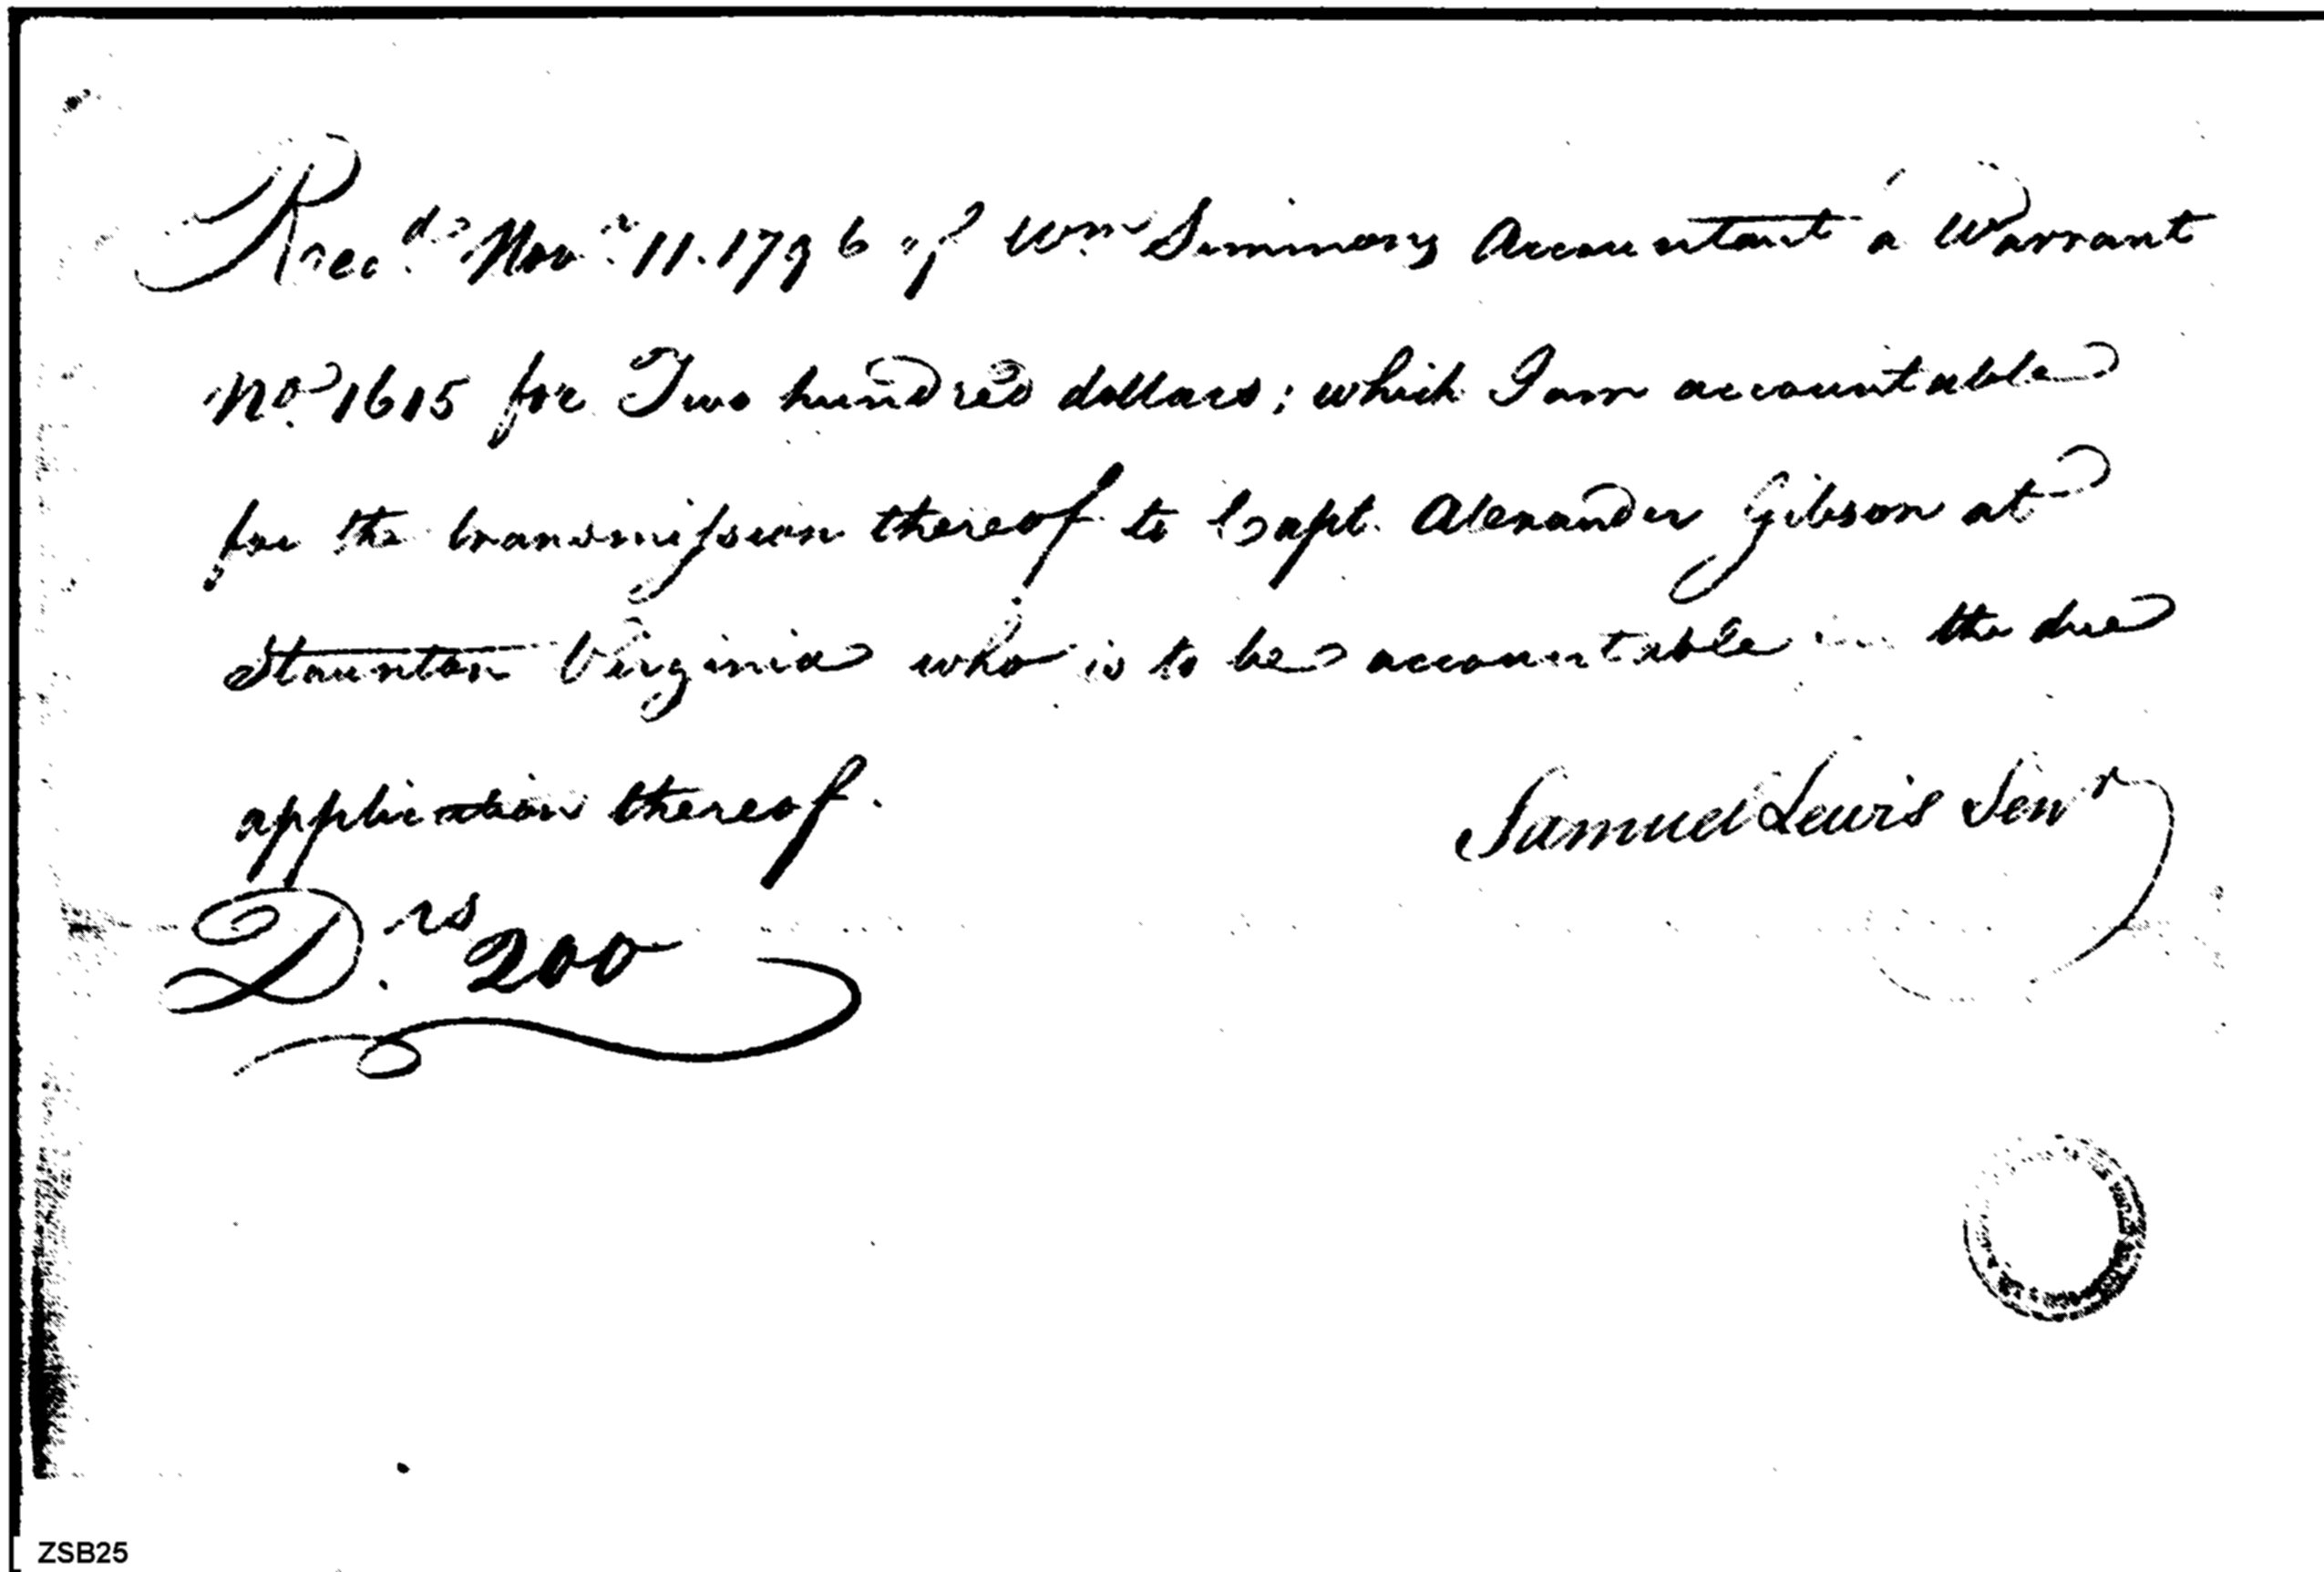 Rec.d Nov.r 11. 1796 of Wm Simmons Accountant a Warrant
No. 1615 for Two hundred dollars; which I am accountable
for the transmission thereof to Capt. Alexander Gibson at
Staunton Virginia who is to be accountable the due
application thereof.
Samuel Lewis Senr
D.rs 200
ZSB25